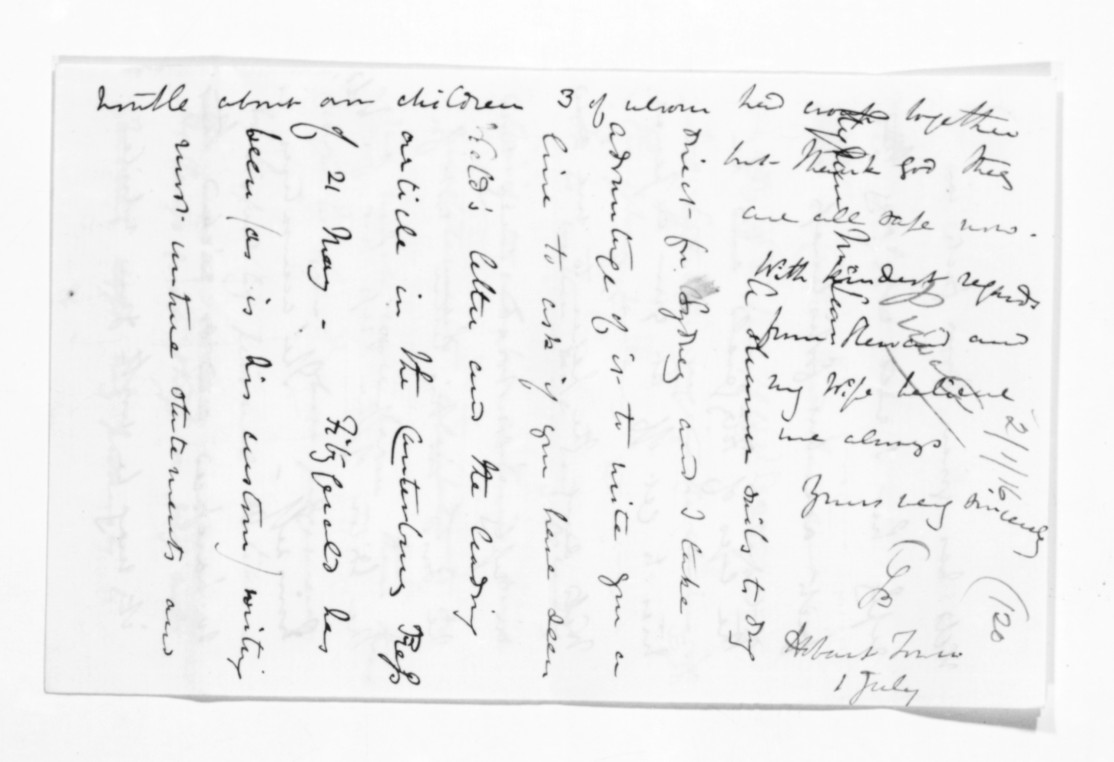 Hobart Town
1 July
My dear McLean
A steamer sails to day
direct for Sydney and I take
advantage of it to write you a
line to ask if you have seen
letter and the leading
article in the Canterbury Press
of 21 May. Fitzgerald has
been (as is his custom) writing
most untrue statements and
trouble about our children 3 of whom had croup together
but thank God they
are all safe now.
With kindest regards
from and
my wife believe
me always
Yours very sincerely
(120